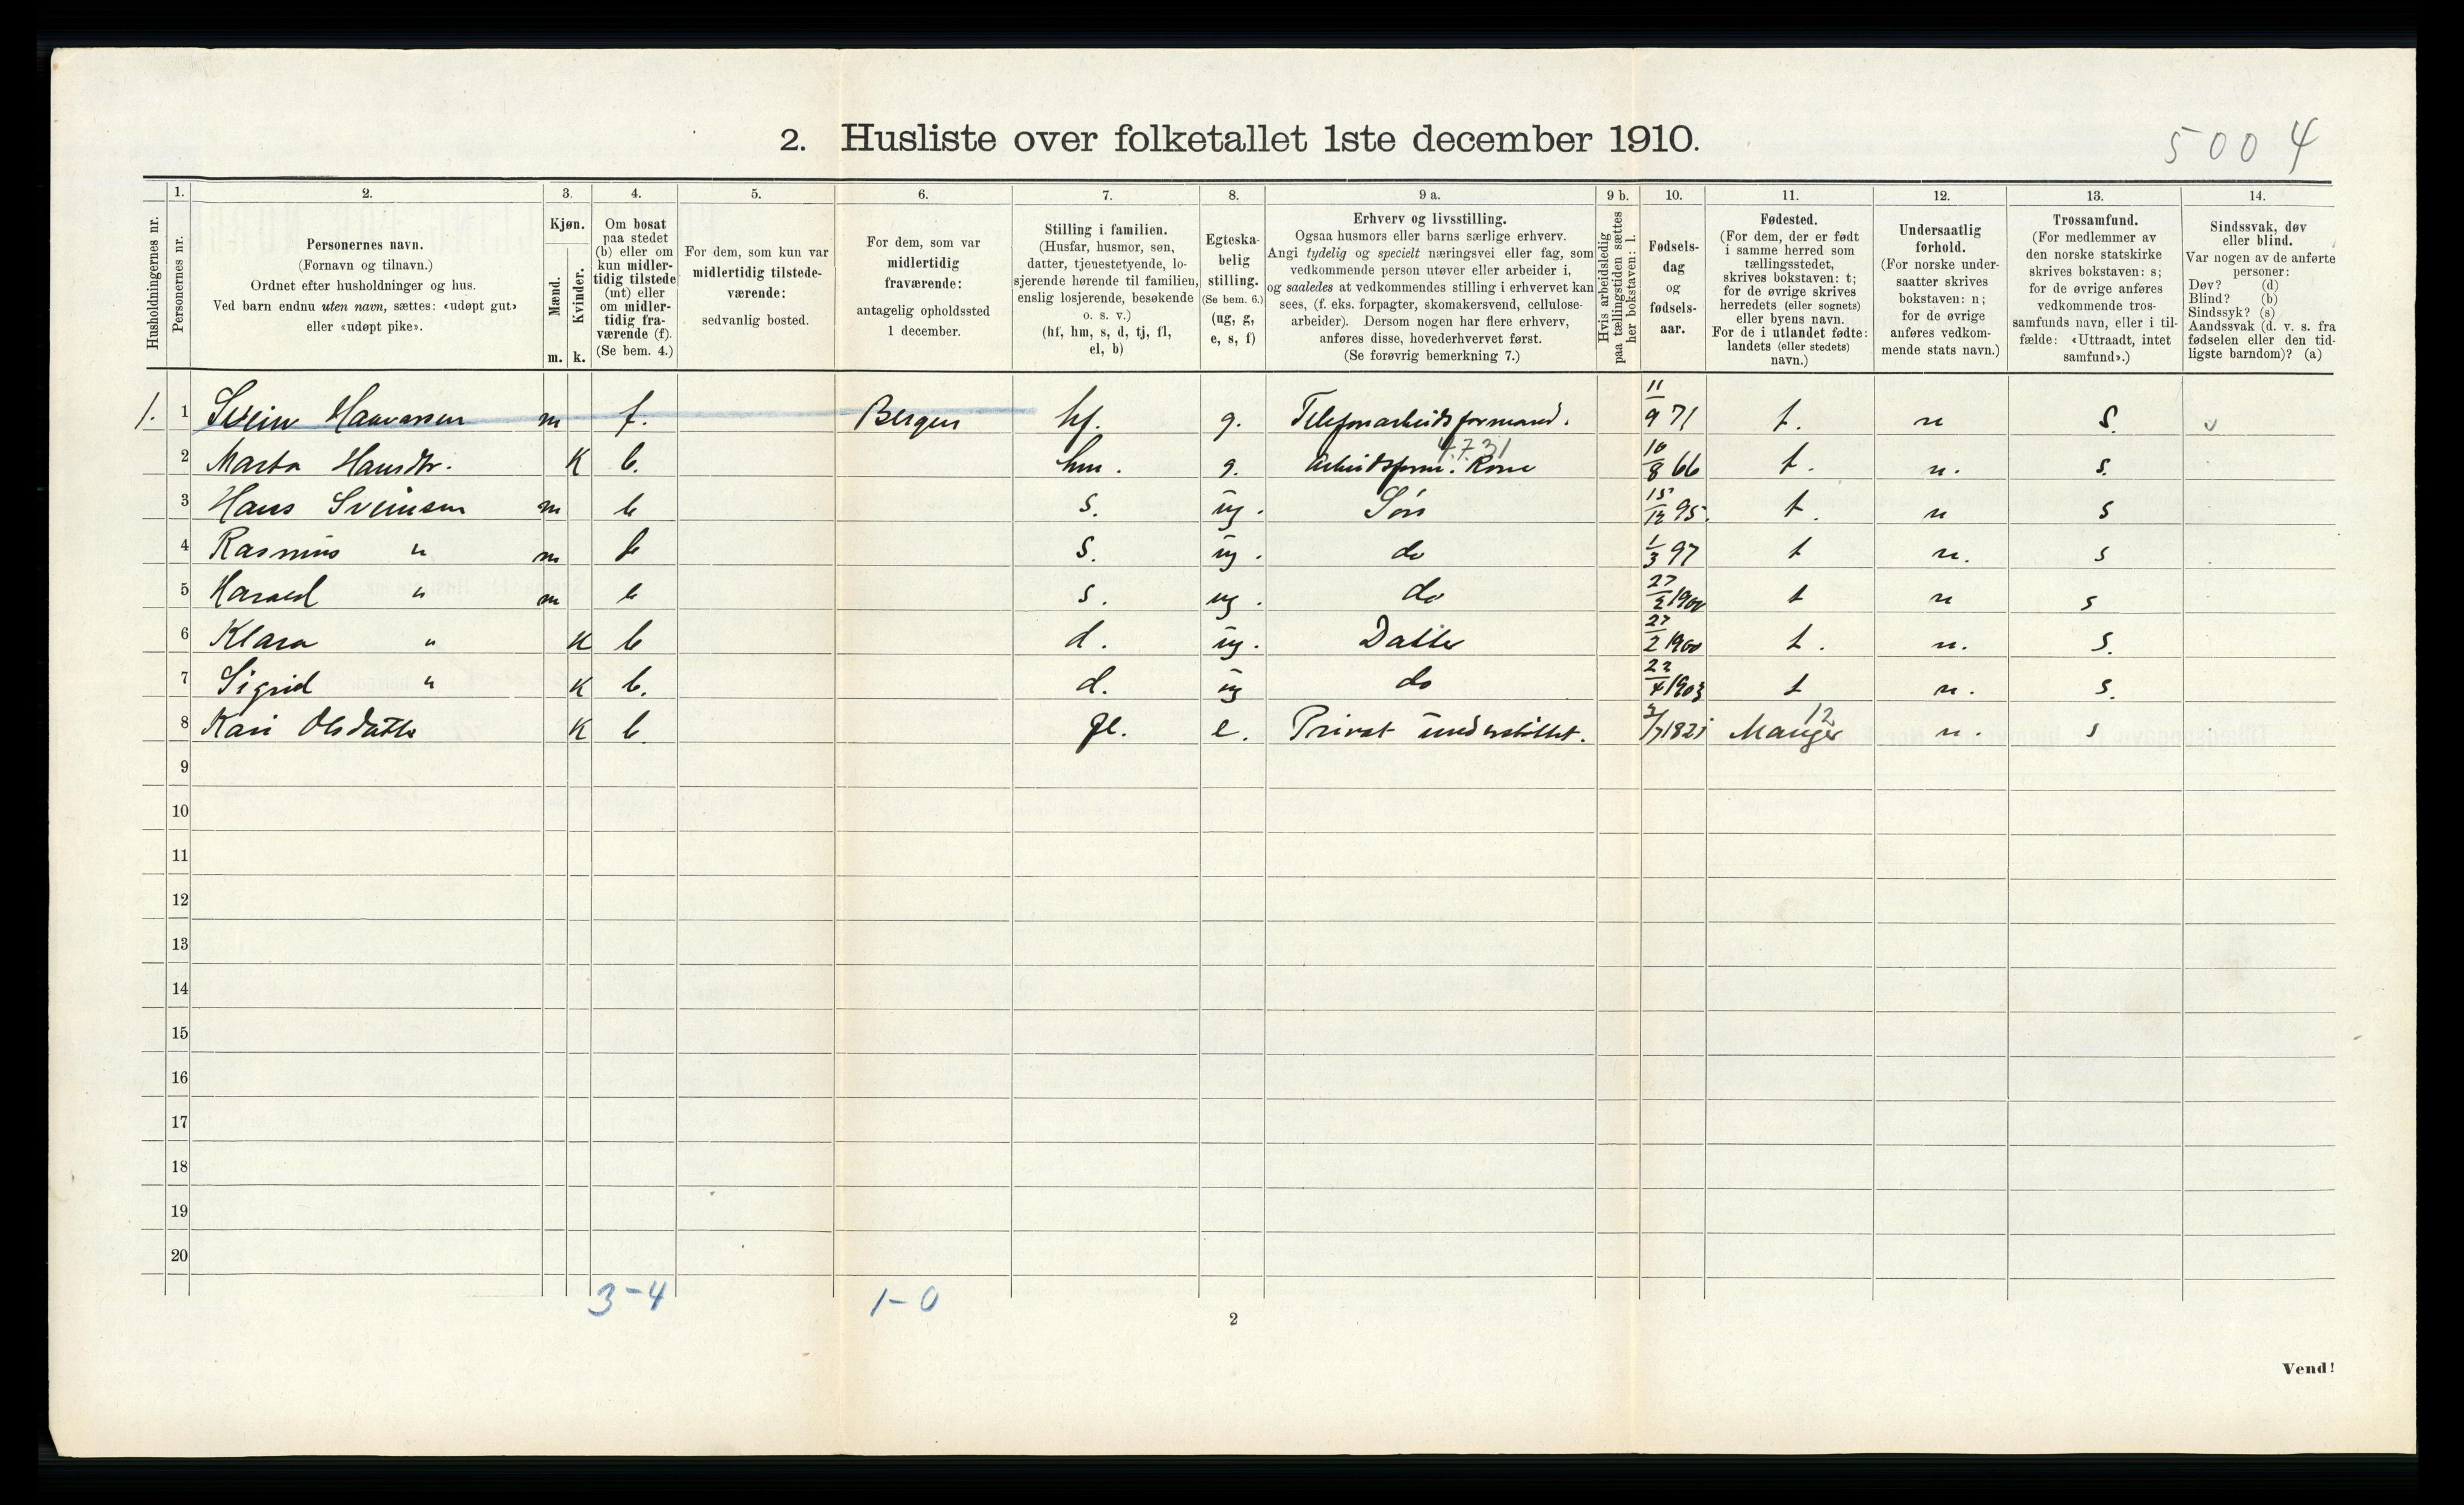 2. Husliste over folketallet 1ste december 1910.
5004
Husholdningernes nr.
1. Personernes nr.
2. Personernes navn.
(Fornavn og tilnavn.)
Ordnet efter husholdninger og hus.
Ved barn endnu uten navn, sættes: «udøpt gut»
eller «udøpt pike».
3. Kjøn.
Mænd. m.
Kvinder. k.
4. Om bosat
paa stedet
(b) eller om
kun midler-
tidig tilstede
(mt) eller
om midler-
tidig fra-
værende (f).
(Se bem. 4.)
5. For dem, som kun var
midlertidig tilstede-
værende:
sedvanlig bosted.
6. For dem, som var
midlertidig
fraværende:
antagelig opholdssted
1 december.
7. Stilling i familien.
(Husfar, husmor, søn,
datter, tjenestetyende, lo-
sjerende hørende til familien,
enslig losjerende, besøkende
o. s. v.)
(hf, hm, s, d, tj, fl,
el, b)
8. Egteska-
belig
stilling.
(Se bem. 6.)
(ug, g,
e, s, f)
9 a. Erhverv og livsstilling.
Ogsaa husmors eller barns særlige erhverv.
Angi tydelig og specielt næringsvei eller fag, som
vedkommende person utøver eller arbeider i,
og saaledes at vedkommendes stilling i erhvervet kan
sees, (f. eks. forpagter, skomakersvend, cellulose-
arbeider). Dersom nogen har flere erhverv,
anføres disse, hovederhvervet først.
(Se forøvrig bemerkning 7.)
9 b. Hvis arbeidsledig
paa tællingstiden sættes
her bokstaven: l.
10. Fødsels-
dag
og
fødsels-
aar.
11. Fødested.
(For dem, der er født
i samme herred som
tællingsstedet,
skrives bokstaven: t;
for de øvrige skrives
herredets (eller sognets)
eller byens navn.
For de i utlandet fødte:
landets (eller stedets)
navn.)
12. Undersaatlig
forhold.
(For norske under-
saatter skrives
bokstaven: n;
for de øvrige
anføres vedkom-
mende stats navn.)
13. Trossamfund.
(For medlemmer av
den norske statskirke
skrives bokstaven: s;
for de øvrige anføres
vedkommende tros-
samfunds navn, eller i til-
fælde: «Uttraadt, intet
samfund».)
14. Sindssvak, døv
eller blind.
Var nogen av de anførte
personer:
Døv? (d)
Blind? (b)
Sindssyk? (s)
Aandssvak (d. v. s. fra
fødselen eller den tid-
ligste barndom)? (a)
1. 1 Svein Haavarsen m f. Bergen hf. g. Telefonarbeidsformand. 11/9 71 t. n S. v
2 Marta Hansdtr. K b. hm. g. Arbeidsform. Kone 4.7.31 10/8 66 t. n. s.
3 Hans Sveinsen m b s. ug. Søn 15/12 95. t. n s
4 Rasmus " m b s. ug. do 1/3 97 t n. s
5 Harald " m b s. ug. do 27/2 1900 t n s
6 Klara " K b d. ug. Datter 27/2 1900 t. n. s.
7 Sigrid " K b. d. ug do 22/4 1903 t n. s.
8 Kari Olsdatter K b. fl. e. Privat understøttet. 1821 Manger 12 n. s
9
10
11
12
13
14
15
16
17
18
19
20
3-4 1-0
2
Vend!